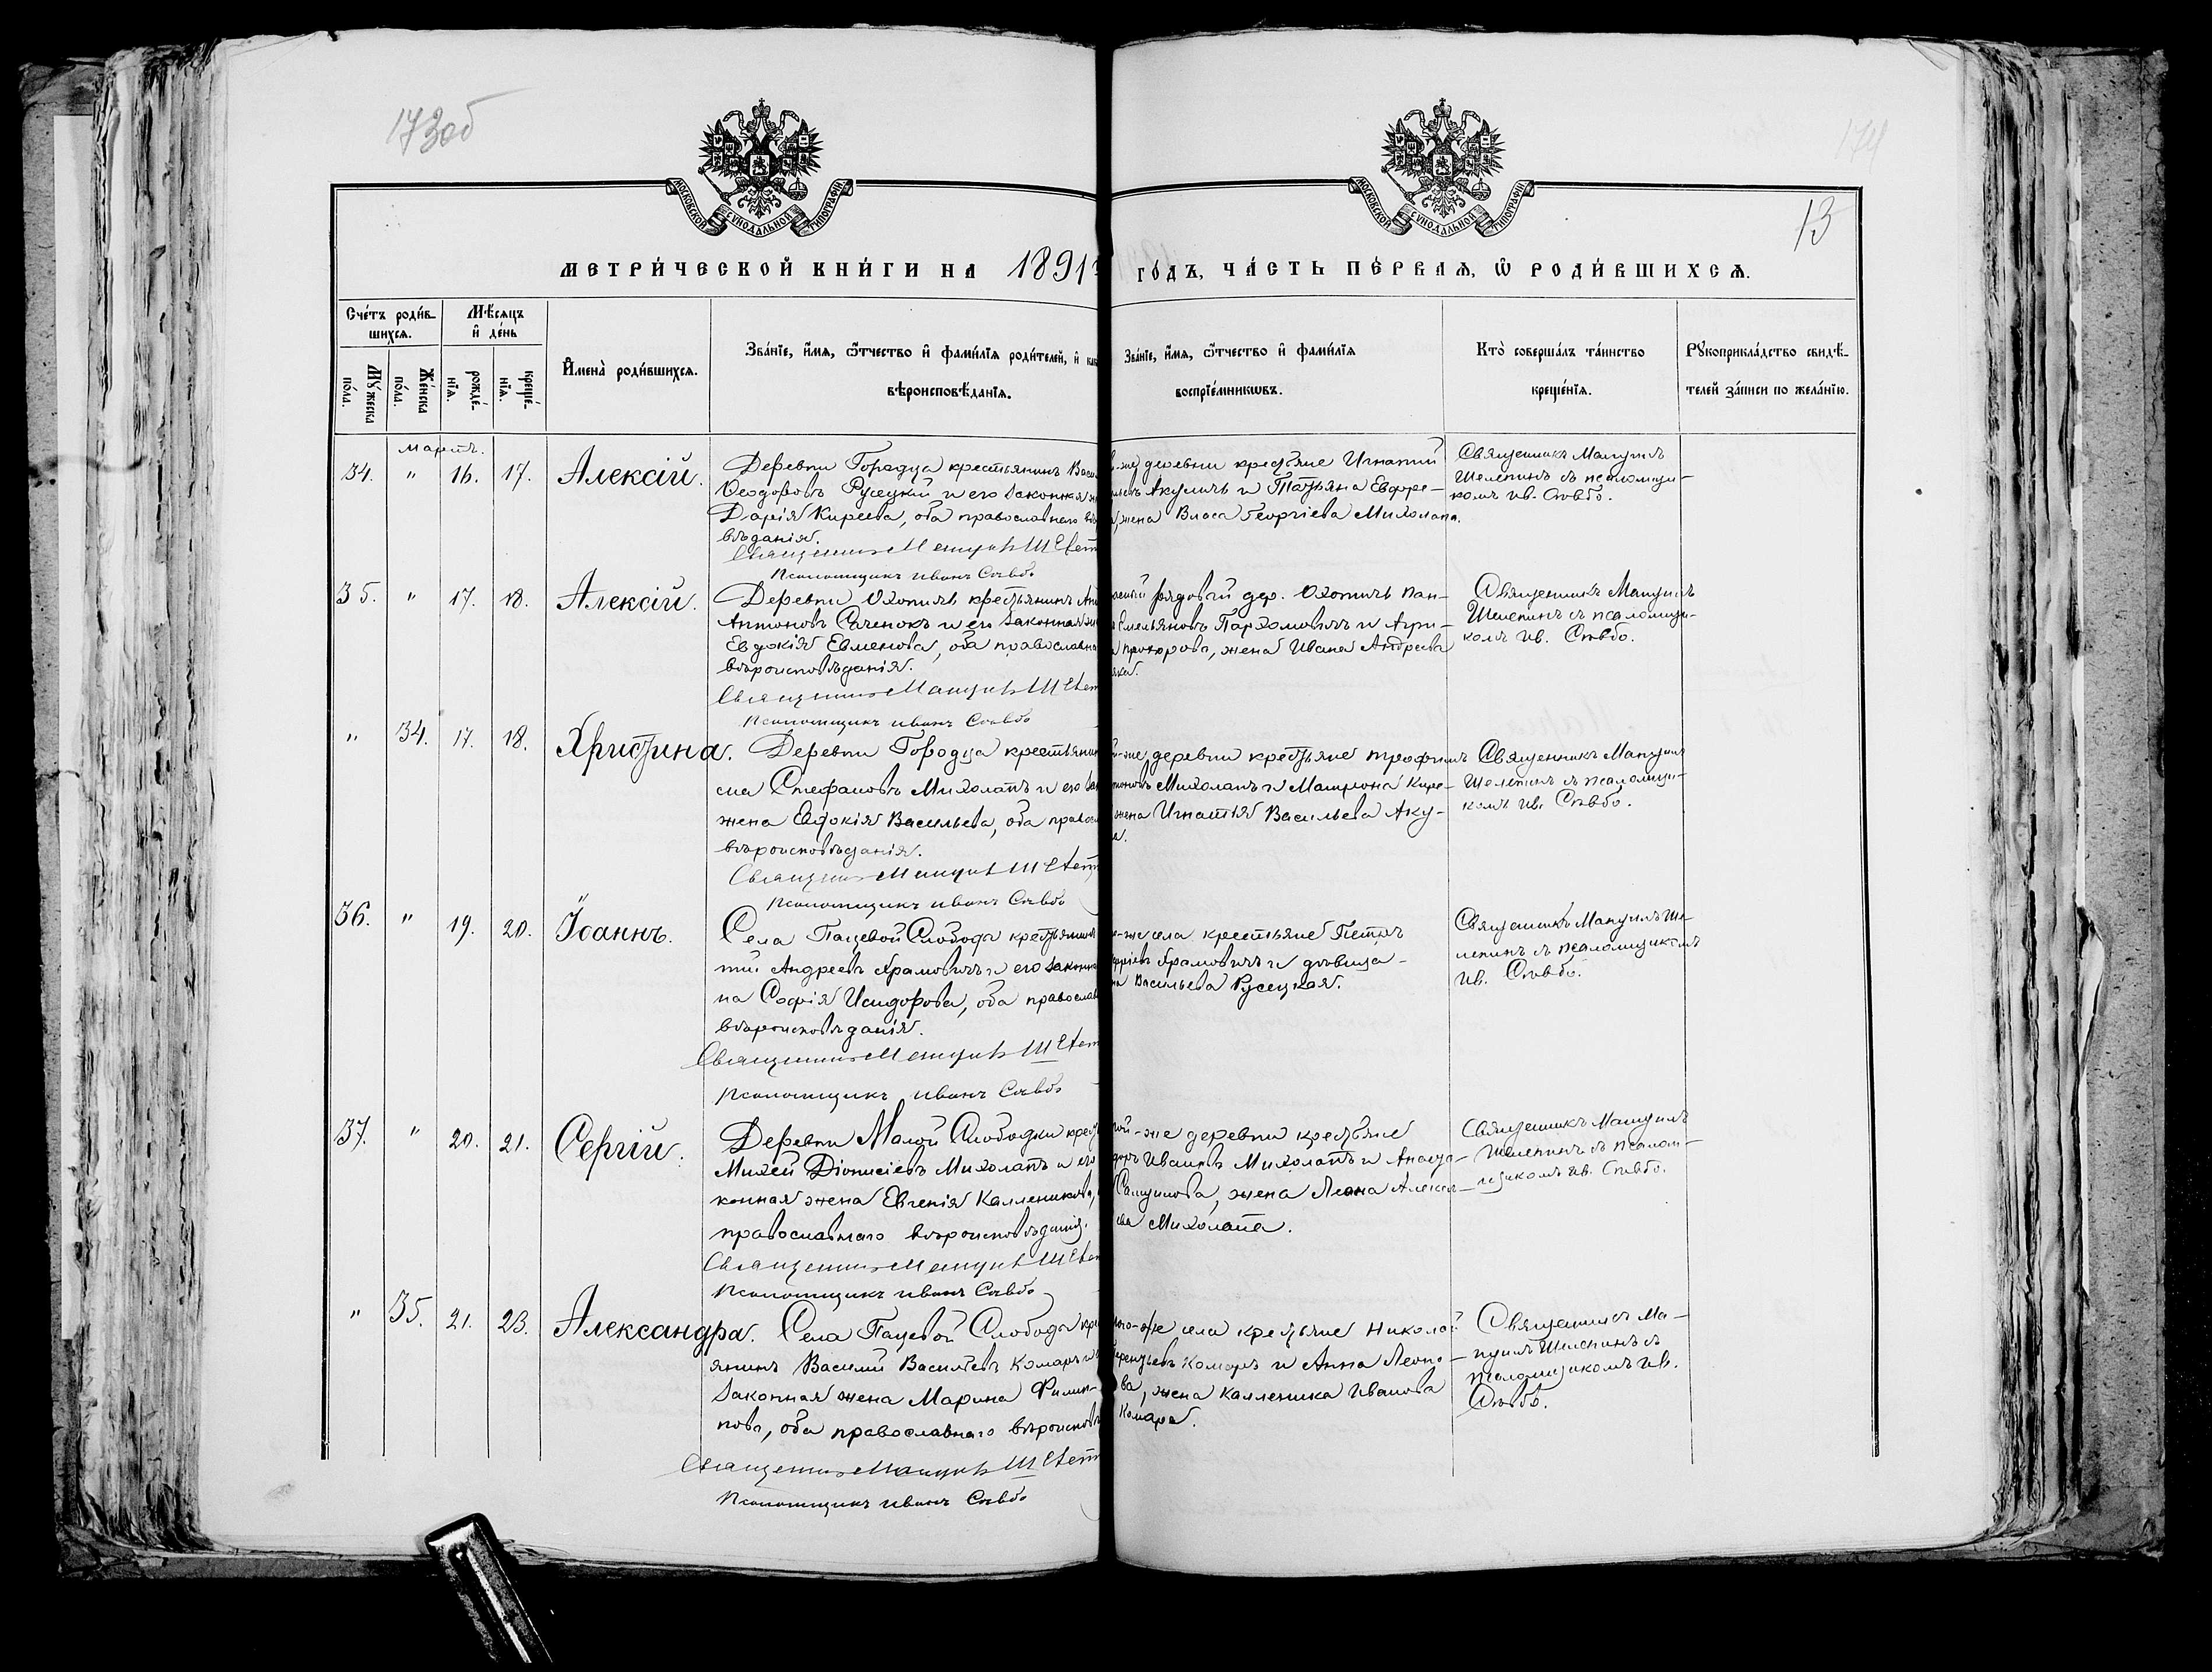 173об
174
13
МОСКОВСКОЙ СУНОДАЛЬНОЙ ТИПОГРАФІИ
МОСКОВСКОЙ СУНОДАЛЬНОЙ ТИПОГРАФІИ
МЕТРИ́ЧЕСКОЙ КНИ́ГИ НА 1891 ГО́ДЪ, ЧА́СТЬ ПЕ́РВАѦ, Ѡ҆ РОДИ́ВШИХСѦ.
Сче́тъ роди́в-
шихсѧ.
Мѣ́сѧцъ
и҆ де́нь
Мꙋ́жеска
по́ла.
Же́нска
по́ла.
рожде́-
нїѧ.
креще́-
нїѧ.
И҆мена̀ роди́вшихсѧ.
Зва́нїе, и҆́мѧ, ѻ҆́тчество и҆ фами́лїѧ роди́телей, и҆
вѣроисповѣ́данїѧ.
Зва́нїе, и҆́мѧ, ѻ҆́тчество и҆ фами́лїѧ
воспрїе́мникѡвъ.
Кто̀ соверша́лъ та́инство
креще́нїѧ.
Рꙋкоприкла́дство свидѣ́-
телей за́писи по жела́нїю.
мартъ.
34. " 16. 17. Алексій.
Деревни Городца крестьянинъ Васи
Ѳеодоровъ Русецкій и его законная
Дарія Киреева, оба православнаго
вѣданія.
Священник Мануил
Псаломщикъ Иванъ Сѣвбо
-же деревни крестьяне Игнатий
Акуличъ и Татьяна Евфре-
жена Власа Георгіева Михолапа.
Священникъ Мануилъ
Шелепинъ съ псаломщи-
комъ Ив. Сѣвбо.
35. " 17. 18. Алексій.
Деревни Охотичь крестьянинъ
Антоновъ Саченокъ и его законная
Евдокія Евменова, оба православна
вѣроисповѣданія.
Священник Мануил
Псаломщикъ Иванъ Сѣвбо
рядовой дер. Охотичь Пан-
Емельяновъ Пархомовичъ и Агри-
Прохорова, жена Ивана Андреева
Священникъ Мануилъ
Шелепинъ съ псаломщи-
комъ Ив. Сѣвбо.
" 34. 17. 18. Христина.
Деревни Городца крестьянин
Стефановъ Михолапъ и его за
жена Евдокія Васильева, оба правос
вѣроисповѣданія.
Священник Мануил
Псаломщикъ Иванъ Сѣвбо
-же деревни крестьяне Трофимъ
Михолапъ и Матрона Кире-
жена Игнатія Васильева Аку-
Священникъ Мануилъ
Шелепинъ съ псаломщи-
комъ Ив. Сѣвбо.
36. " 19. 20. Іоаннъ.
Села Пацевой Слободы крестьянин
Андреевъ Храмовичъ и его законна
на Софія Исидорова, оба православ
вѣроисповѣданія.
Священник Мануил
Псаломщикъ Иванъ Сѣвбо
-же села крестьяне Петръ
Храмовичъ и дѣвица -
Васильева Русецкая.
Священникъ Мануилъ Ше-
лепинъ съ псаломщикомъ
Ив. Сѣвбо.
37. " 20. 21. Сергій.
Деревни Малой Слободки крест
Михей Діонисіевъ Михолапъ и его
конная жена Евгенія Калленикова,
православнаго вѣроисповѣданія.
Священник Мануил
Псаломщикъ Иванъ Сѣвбо
-же деревни крестьяне
Ивановъ Михолапъ и Анаста-
жена Леона Алексѣ-
ева Михолапа.
Священникъ Мануилъ
Шелепинъ съ псалом-
щикомъ Ив. Сѣвбо.
" 35. 21. 23. Александра.
Села Пацевой Слободы кре
янинъ Василий Васильевъ Комаръ и
законная жена Марина Филип-
пова, оба православнаго вѣроисповѣ
Священник Мануил
Псаломщикъ Иванъ Сѣвбо
-же села крестьяне Николай
Комаръ и Анна Леоно-
ва, жена Калленика Иванова
Комара.
Священникъ Ма-
нуилъ Шелепинъ съ
псаломщикомъ Ив.
Сѣвбо.